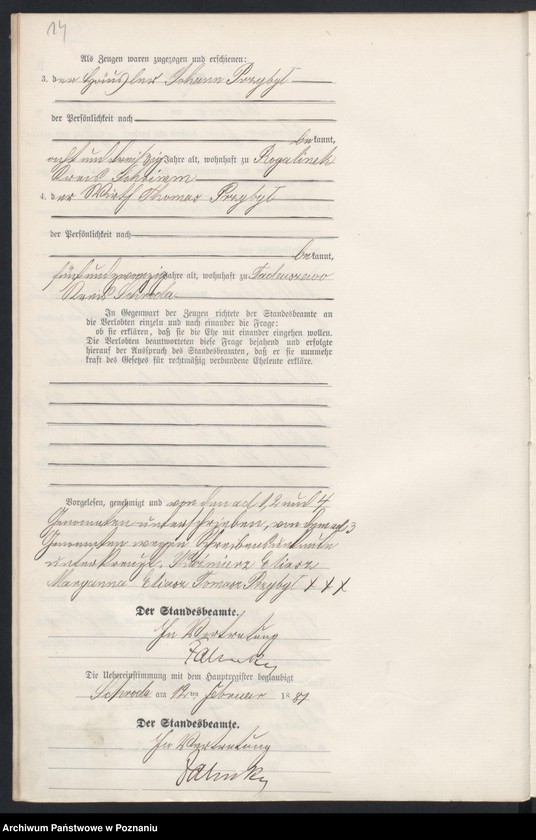 14
Als Zeugen waren zugezogen und erschienen:
3. der Häusler Johann Przybyl
der Persönlichkeit nach
bekannt,
acht und dreißig Jahre alt, wohnhaft zu Rogalinek
Kreis Schrimm
4. der Wirth Thomas Przybyl
der Persönlichkeit nach
bekannt,
fünf und zwanzig Jahre alt, wohnhaft zu Tadeuszewo
Kreis Schroda
In Gegenwart der Zeugen richtete der Standesbeamte an
die Verlobten einzeln und nach einander die Frage:
ob sie erklären, daß sie die Ehe mit einander eingehen wollen.
Die Verlobten beantworteten diese Frage bejahend und erfolgte
hierauf der Ausspruch des Standesbeamten, daß er sie nunmehr
kraft des Gesetzes für rechtmäßig verbundene Eheleute erkläre.
Vorgelesen, genehmigt und von den ad 1, 2 und 4
Genannten unterschrieben, von dem ad 3
Genannten wegen Schreibensunkunde
unterkreuzt. Kazimierz Eliasz
Maryanna Eliasz Tomasz Przybyl + + +
Der Standesbeamte.
In Vertretung
Die Uebereinstimmung mit dem Hauptregister beglaubigt
Schroda am 12ten Februar 1887
Der Standesbeamte.
In Vertretung
Archiwum Państwowe w Poznaniu